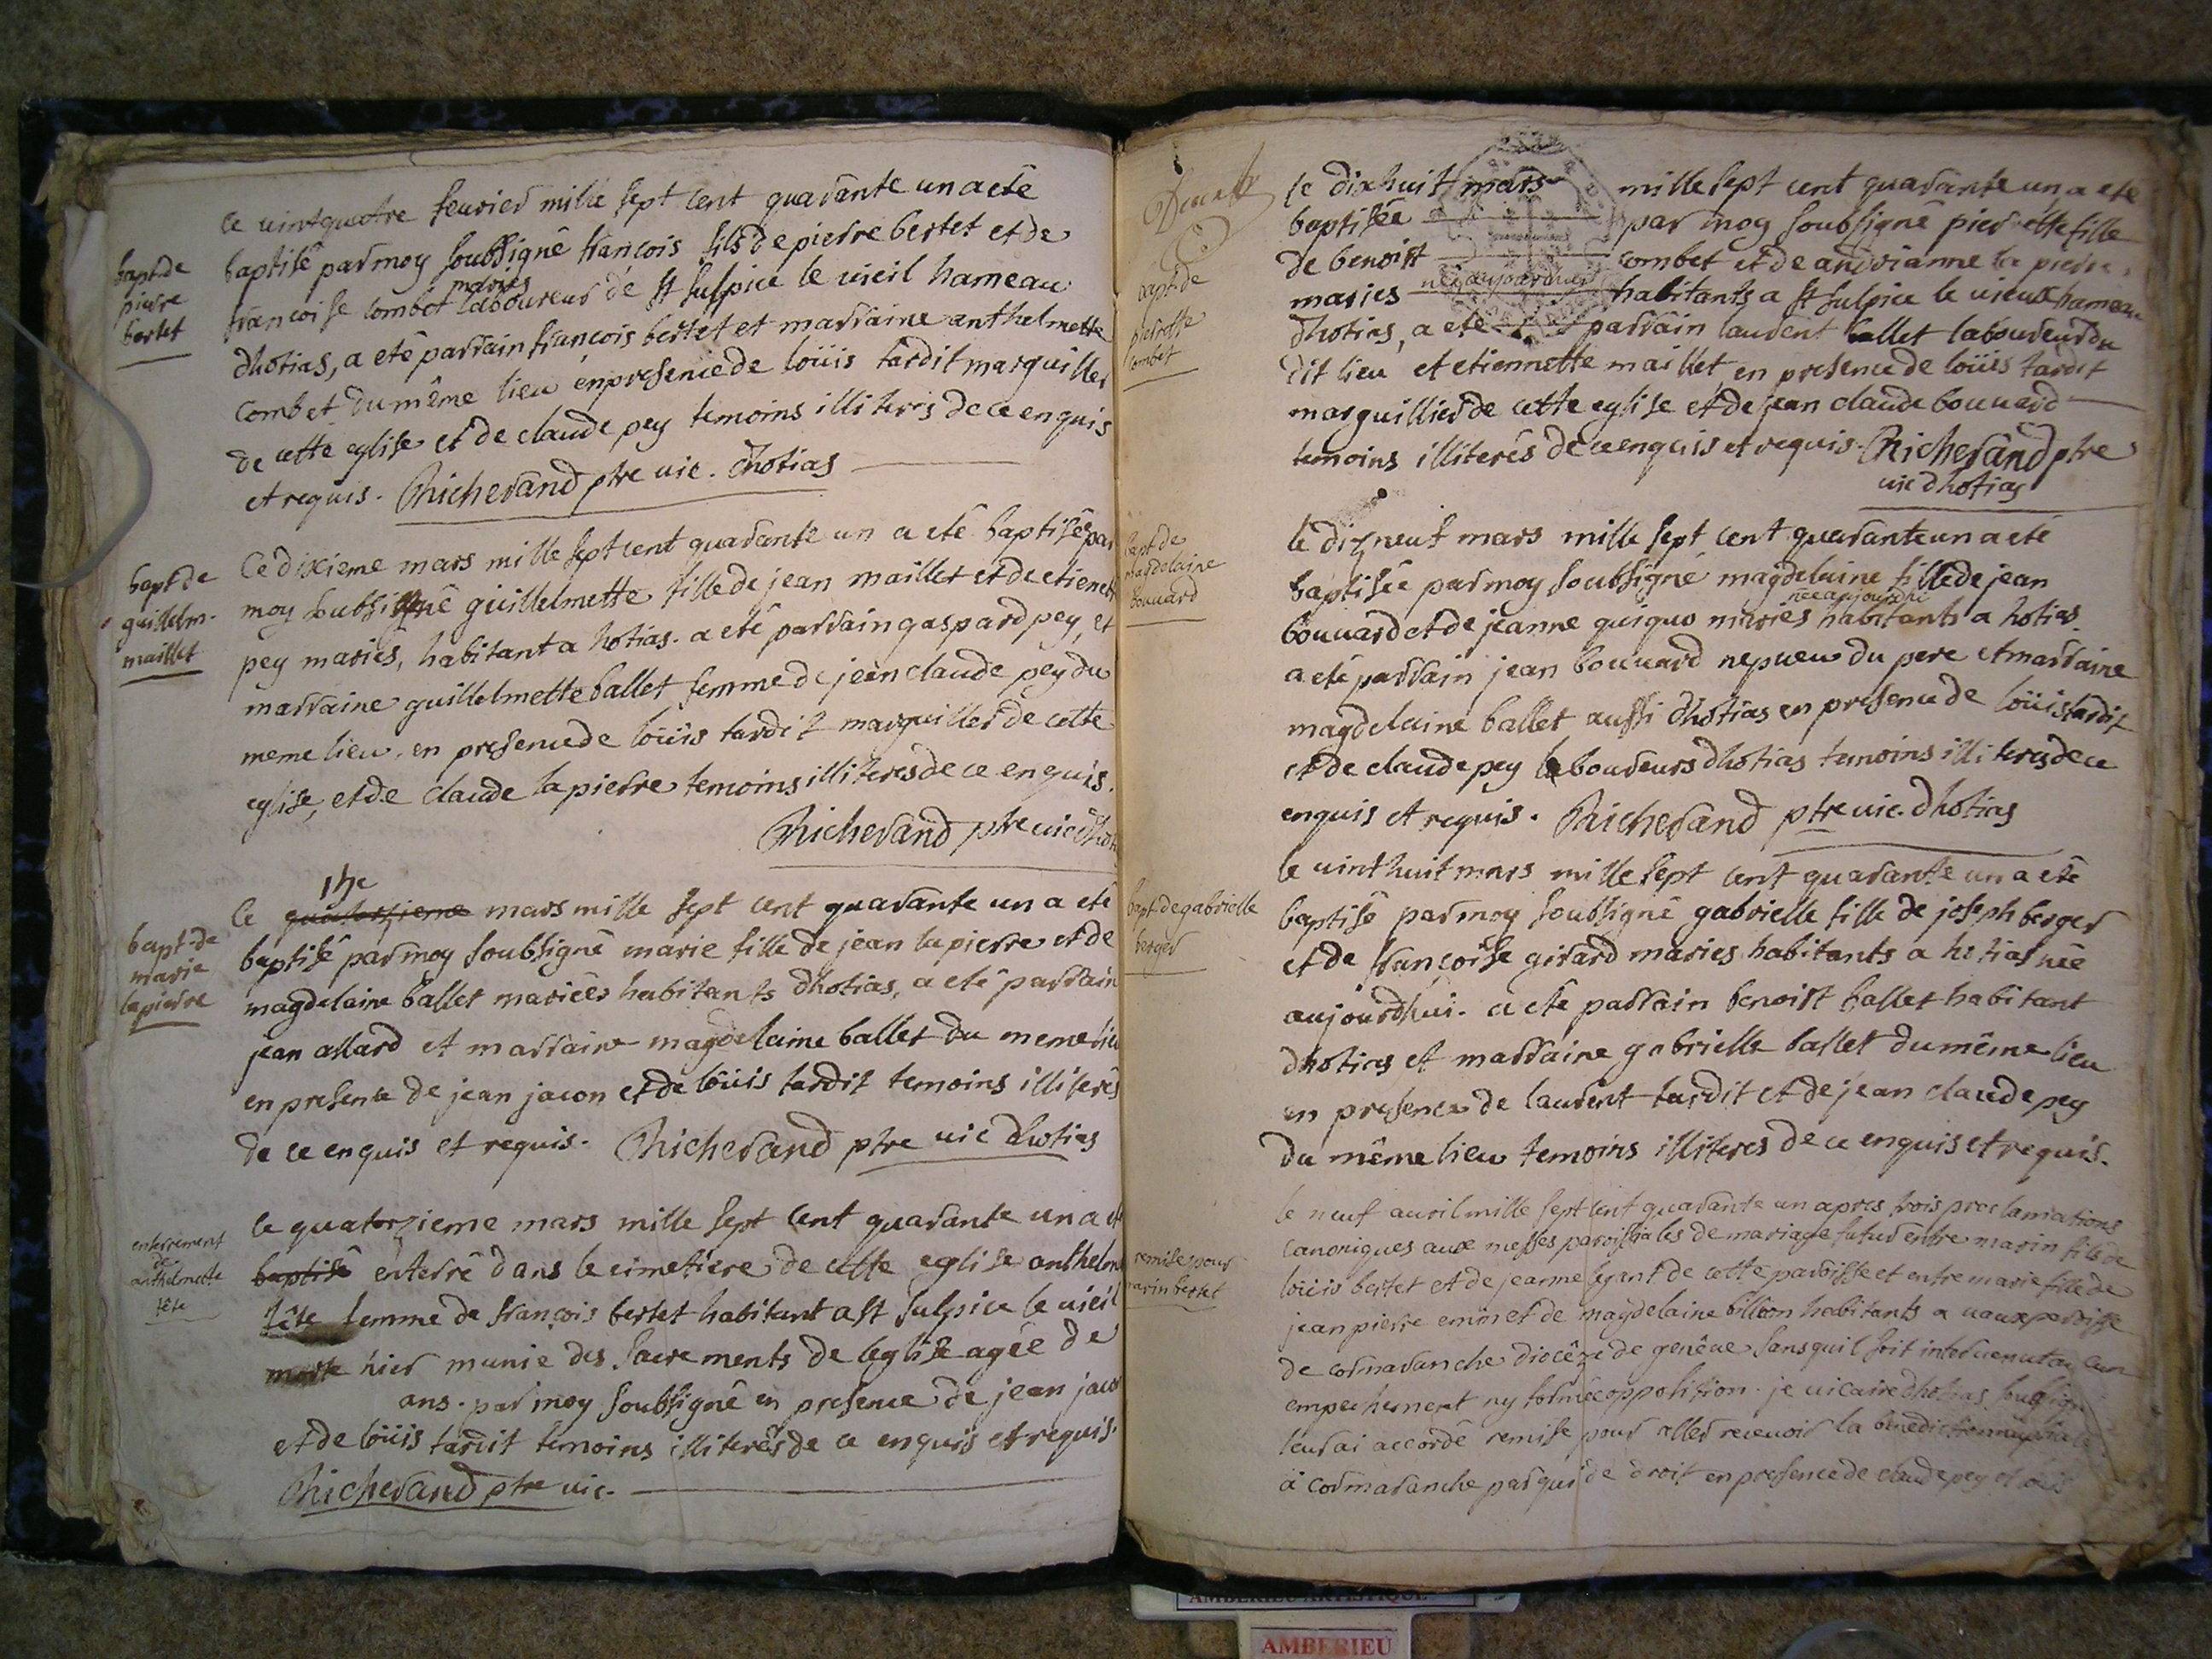 ce vintquatre feurier mille sept cent quarante un a eté
bapt. de
pierre
bertet
baptisé par moy soubsigné françois fils de pierre bertet et de
mariés
francoise combet laboureur de st sulpice le vieil hameau
dhotias, a eté parrain françois bertet et marraine anthelmette
combet du même lieu en presence de loüis tardit marguiller
de cette eglise et de claude pey temoins illiterés de ce enquis
et requis. Richerand ptre uic. dhotias
bapt. de
guillelm.
maillet
Ce dixieme mars mille sept cent quarante un a eté baptisée par
moy soubsigné guillelmette fille de jean maillet et de etienette
pey mariés, habitant a hotias. a eté parrain gaspard pey, et
marraine guillelmette ballet femme de jean claude pey du
meme lieu. en presence de loüis tardit marguiller de cette
eglise, et de claude lapierre temoins illiterés de ce enquis.
Richerand ptre uic dhoti
bapt. de
marie
lapierre
Ce quatorzieme mars mille sept cent quarante un a eté
baptisé par moy soubsigné marie fille de jean lapierre et de
magdelaine ballet mariées habitants dhotias, a eté parrain
jean allard et marraine magdelaine ballet du meme lieu
en presente de jean jacon et de loüis tardit temoins illiterés
de ce enquis et requis. Richerand ptre uic dhotias
enterrement
de
anthelmette
tête
le quatorzieme mars mille sept cent quarante un a eté
baptisé enterré dans le cimetiere de cette eglise anthelm
tête femme de françois bertet habitant a st sulpice le vieil
morte hier munie des sacrements de leglise agée de
ans. par moy soubsigné en presence de jean jacon
et de loüis tardit temoins illiterés de ce enquis et requis.
Richerand ptre uic.
bapt. de
pierrette
combet
le dixhuit mars mille sept cent quarante un a eté
baptisée par moy soubsigné pierrette fille
de benoist combet et de andrianne la pierre,
mariés née aujourdhuy habitants a st sulpice le vieux hameau
dhotias, a eté parrain laurent ballet laboureur du
dit lieu et etiennette maillet, en presence de loüis tardit
marguillier de cette eglise et de jean claude bouuard
temoins illiterés de ce enquis et requis. Richerand ptre
uic dhotias
bapt. de
magdelaine
bouuard
le dizneuf mars mille sept cent quarante un a eté
baptisée par moy soubsigné magdelaine fille de jean
née aujourdhui
bouuard et de jeanne guigue mariés habitants a hotias
a eté parrain jean bouuard nepueu du pere et marraine
magdelaine ballet aussi dhotias en presence de loüis tardit
et de claude pey laboureurs dhotias temoins illiterés de ce
enquis et requis. Richerand ptre uic. dhotias
bapt. de gabrielle
berger
le vint huit mars mille sept cent quarante un a eté
baptisé par moy soubsigné gabrielle fille de joseph berger
et de françoise girard mariés habitants a hotias née
aujourdhui. a eté parrain benoist ballet habitant
dhotias et marraine gabrielle ballet du même lieu
en presence de laurent tardit et de jean claude pey
du même lieu temoins illiteres de ce enquis et requis.
remise pour
marin bertet
le neuf auril mille sept cent quarante un apres trois proclamations
canoniques aux messes paroissiales de mariage futur entre marin fils de
loüis bertet et de jeanne de cette paroisse et entre marie fille de
jean pierre emin et de magdelaine billion habitants a uaux paroisse
de cormaranche diocêze de genêue sans quil soit interuenu aucun
empechement ny formée opposition. je uicaire dhotias soubsigné
leur ai accordé remise pour aller receuoir la benediction nuptiale
à cormaranche par qui de droit en presence de claude pey et
AMBERIEU ARTISTIQUE
AMBERIEU